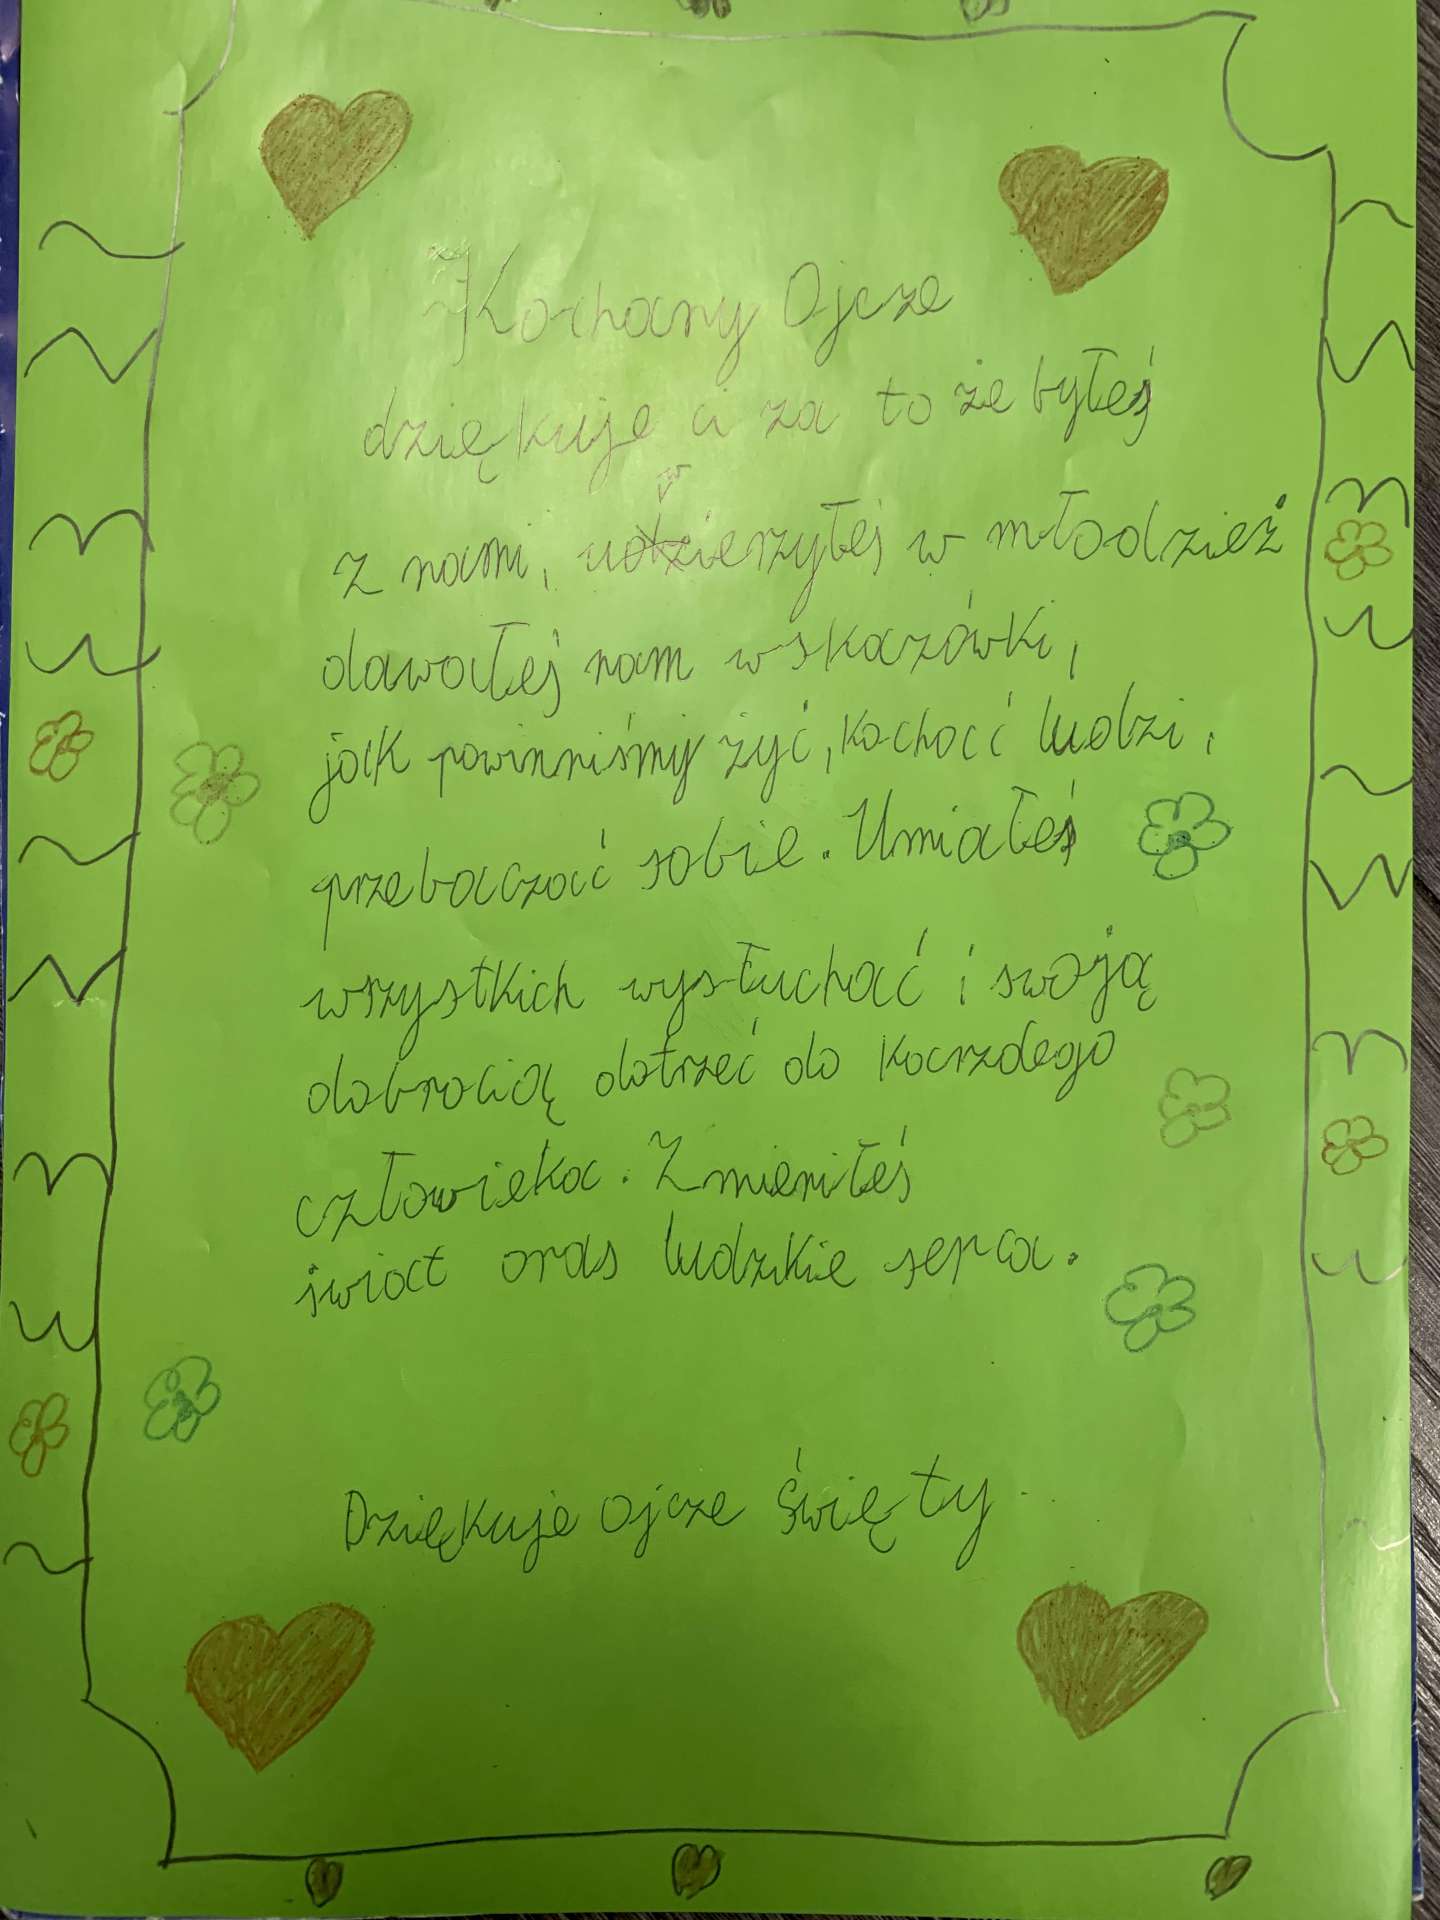 Kochany Ojcze
dziękuje ci za to że byłeś
z nami, uwierzyłeś w młodzież
dawałeś nam wskazówki,
jak powinniśmy żyć, kochać ludzi,
przebaczać sobie. Umiałeś
wszystkich wysłuchać i swoją
dobrocią dotrzeć do karzdego
człowieka. Zmieniłeś
świat oras ludzkie serca.
Dziękuje Ojcze Święty.